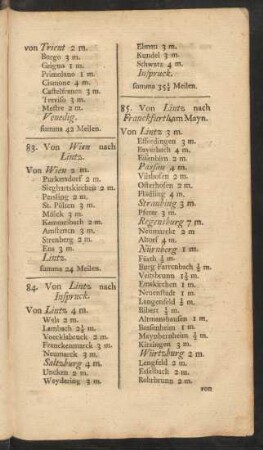 von Trient 2 m.
Borgo 3 m.
Grigno 1 m.
Primolano 1 m.
Cismone 4 m.
Castelfranco 3 m.
Treviso 3 m.
Mestre 2 m.
Venedig.
summa 42 Meilen.
83. Von Wien nach
Lintz.
Von Wien 2 m.
Purkersdorf 2 m.
Sieghartskirchen 2 m.
Perstling 2 m.
St. Pölten 3 m.
Mölck 3 m.
Kemmelbach 2 m.
Amstetten 3 m.
Strenberg 2 m.
Ens 3 m.
Lintz.
summa 24 Meilen.
84. Von Lintz nach
Inspruck.
Von Lintz 4 m.
Wels 2 m.
Lambach 2½ m.
Voecklabruck 2 m.
Franckenmarck 3 m.
Neumarck 3 m.
Saltzburg 4 m.
Uncken 2 m.
Waydering 3 m.
Elman 3 m.
Kundel 3 m.
Schwatz 4 m.
Inspruck.
summa 35½ Meilen.
85. Von Lintz nach
Franckfurth am Mayn.
Von Lintz 3 m.
Efferdingen 3 m.
Bayerbach 4 m.
Passau 4 m.
Vilshofen 2 m.
Osterhofen 2 m.
Platling 4 m.
Straubing 3 m.
Pfatter 3 m.
Regensburg 7 m.
Neumarckt 2 m.
Altorf 4 m.
Nürnberg 1 m.
Fürth ½ m.
Burg Farrenbach ½ m.
Emskirchen 1 m.
Neuenstadt 1 m.
Langenfeld ½ m.
Bibert ½ m.
Altmanshausen 1 m.
Possenheim 1 m.
Maynbernheim ½ m.
Kitzingen 3 m.
Würtzburg 2 m.
Lengfeld 2 m.
Esselbach 2 m.
Rohrbrunn 2 m.
von